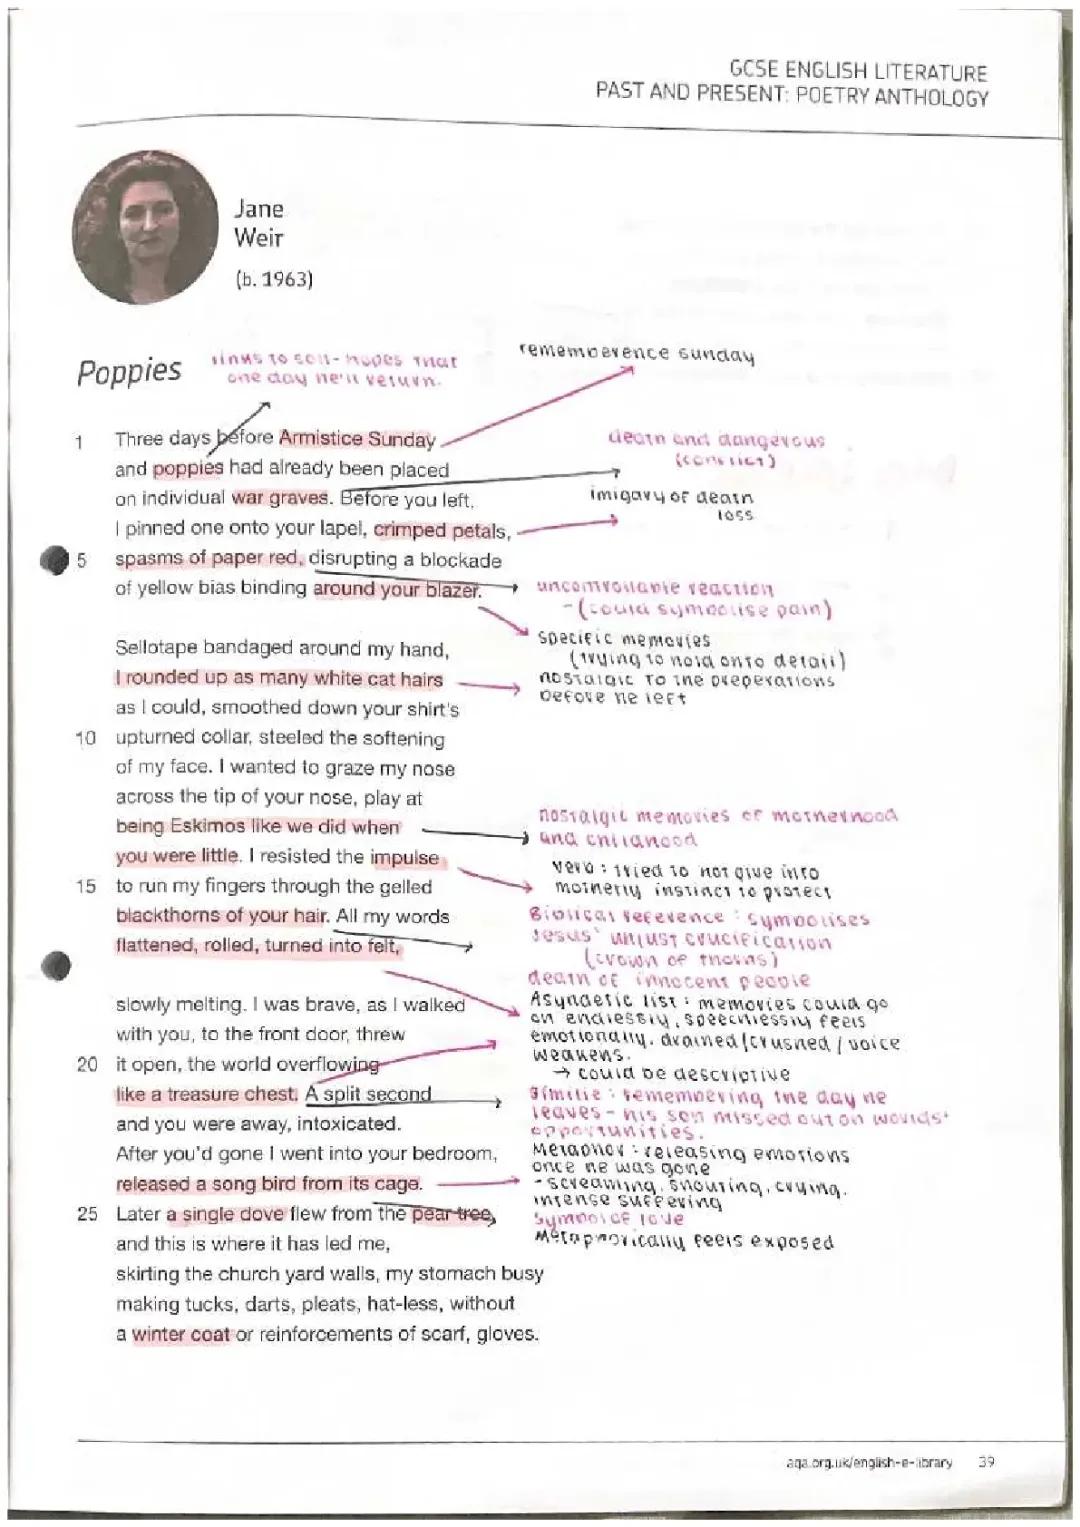 GCSE ENGLISH LITERATURE
PAST AND PRESENT: POETRY ANTHOLOGY
Jane
Weir
(b. 1963)
Poppies
links to soil- hopes that
one day he'll return.
rememberence sunday
1 Three days before Armistice Sunday
and poppies had already been placed
on individual war graves. Before you left,
I pinned one onto your lapel, crimped petals,
5 spasms of paper red, disrupting a blockade
of yellow bias binding around your blazer.
death and dangerous
(conflict)
imigary of death
loss
uncontrollable reaction
-(could symbolise pain)
specific memories
(trying to hold onto detail)
nostalgic to the preperations
before he left
Sellotape bandaged around my hand,
I rounded up as many white cat hairs
as I could, smoothed down your shirt's
10 upturned collar, steeled the softening
of my face. I wanted to graze my nose
across the tip of your nose, play at
being Eskimos like we did when
you were little. I resisted the impulse
15 to run my fingers through the gelled
blackthorns of your hair. All my words
flattened, rolled, turned into felt,
nostalgic memories of motherhood
and childhood
verb : tried to not give into
motherly instinct to protect
Biblical reference : symbolises
Jesus' unjust crucification
(crown of thorns)
death of innocent people
Asyndetic list : memories could go
on endlessly, speechlessly feels
emotionally, drained/crushed / voice
weakens.
→ could be descriptive
slowly melting. I was brave, as I walked
with you, to the front door, threw
20 it open, the world overflowing
like a treasure chest. A split second
and you were away, intoxicated.
After you'd gone I went into your bedroom,
released a song bird from its cage.
25 Later a single dove flew from the pear tree,
and this is where it has led me,
skirting the church yard walls, my stomach busy
making tucks, darts, pleats, hat-less, without
a winter coat or reinforcements of scarf, gloves.
Similie : remembering the day he
leaves - his son missed out on worlds'
opportunities.
Metaphor : releasing emotions
once he was gone
- screaming, shouting, crying,
intense suffering
symbol of love
Metaphorically feels exposed
aqa.org.uk/english-e-library 39